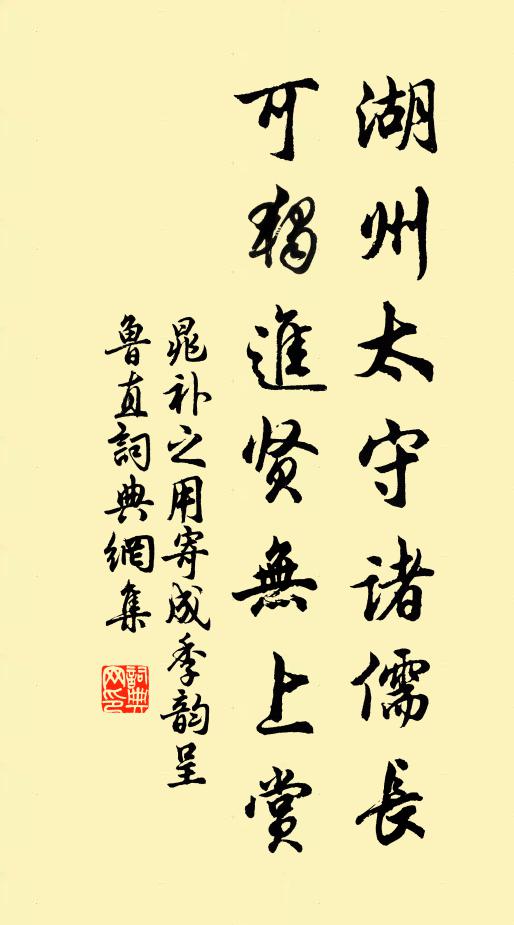 湖州太守诸儒長
可獨進贤無上赏
晁补之用寄成季韵呈
魯直詞典網集
詞典
网印